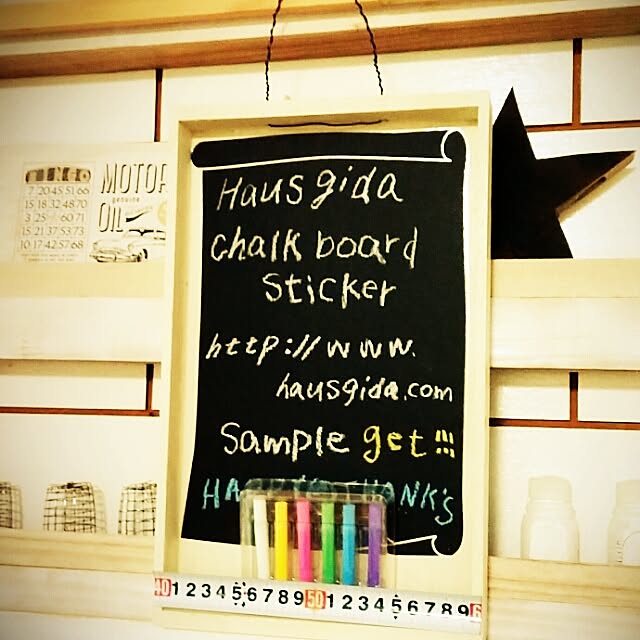 Hausgida
chalk board
sticker
http://www.
hausgida.com
Sample get!!!
THANK's
BINGO
7 20 45 51 66
15 18 32 48 70
3 25 60 71
15 21 37 53 73
10 17 42 57 68
MOTOR
genuine
OIL
40 1 2 3 4 5 6 7 8 9 50 1 2 3 4 5 6 7 8 9 6